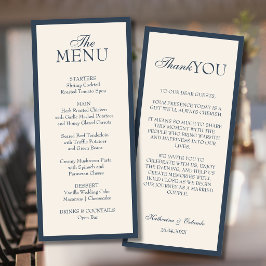 The
MENU
STARTERS
Grilled Shrimp Cocktail
Roasted Tomato Soup
MAIN
Herb Roasted Chicken
with Garlic Mashed Potatoes
and Honey Glazed Carrots
Seared Beef Tenderloin
with Truffle Potatoes
and Green Beans
Creamy Mushroom Pasta
with Spinach and
Parmesan Cheese
DESSERT
Vanilla Wedding Cake
Macarons & Cheesecakes
DRINKS & COCKTAILS
Open Bar
Thank YOU
TO OUR DEAR GUESTS,
YOUR PRESENCE TODAY IS
A GIFT WE'LL ALWAYS CHERISH.
IT MEANS SO MUCH TO SHARE
THIS MOMENT WITH THE
PEOPLE WHO BRING WARMTH
AND HAPPINESS INTO OUR
LIVES.
WE INVITE YOU TO
CELEBRATE WITH US, ENJOY
THE EVENING, AND HELP US
CREATE MEMORIES WE'LL
HOLD CLOSE AS WE BEGIN
OUR JOURNEY AS A MARRIED
COUPLE.
Katherine & Orlando